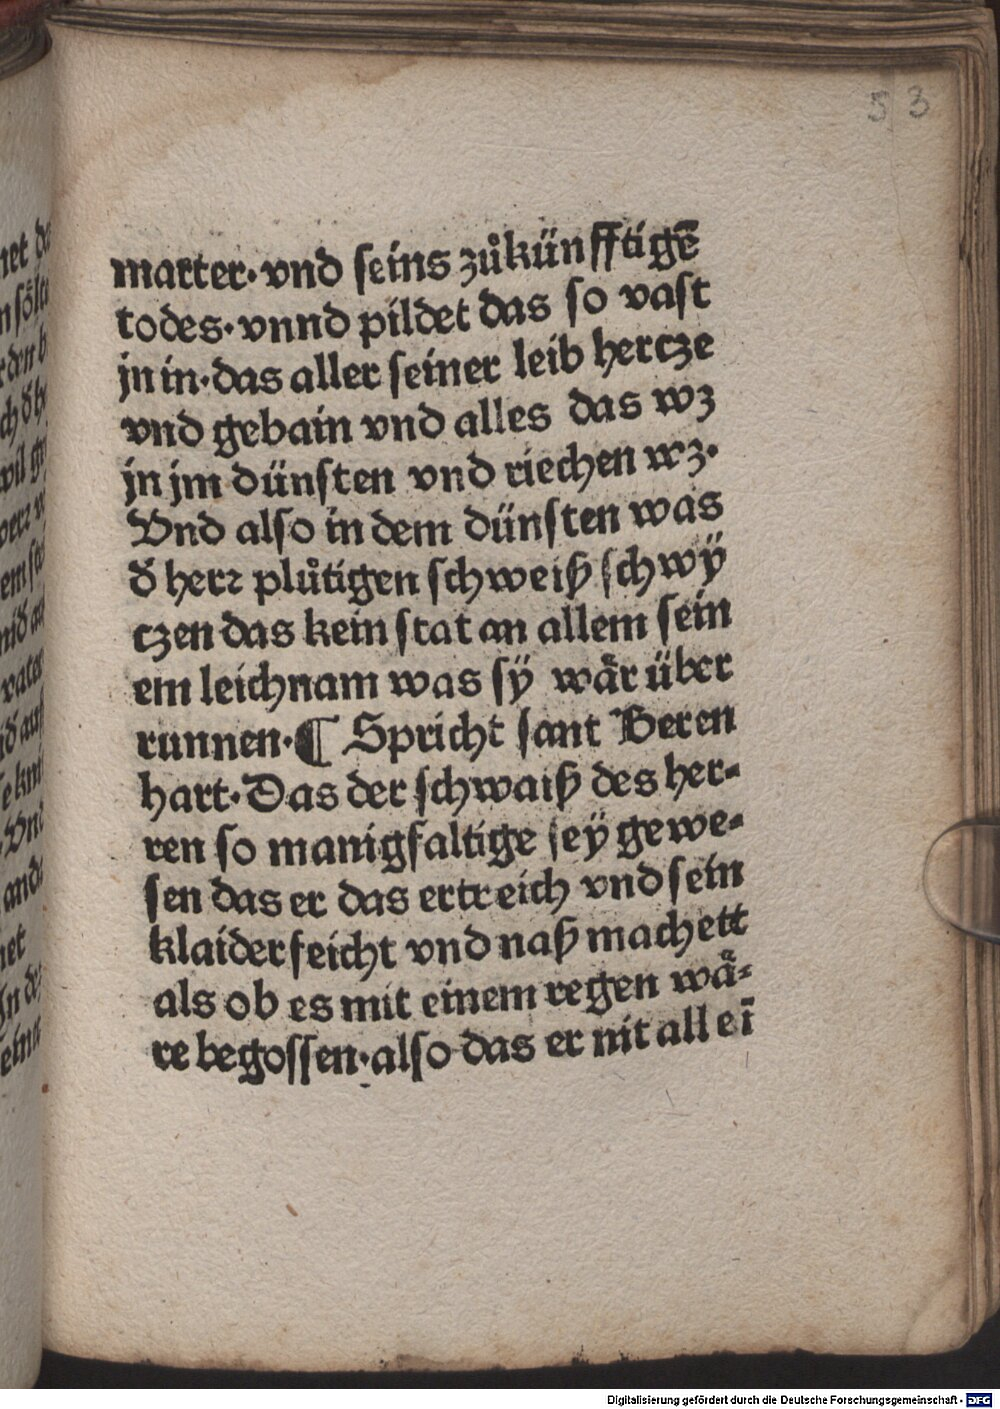 53
marter·vnd seins zuͦkünfftigē
todes·vnnd pildet das so vast
jn in·das aller seiner leib hercze
vnd gebain vnd alles das wʒ
jn jm dünsten vnd riechen wʒ·
Vnd also in dem dünsten was
d̄ herꝛ pluͦtigen schweiß schwÿ
czen das kein stat an allem sein
em leichnam was sÿ waͤr über
runnen·¶ Spricht sant Beren
hart·Das der schwaiß des her⸗
ren so manigfaltige seÿ gewe⸗
sen das er das ertreich vnd sein
klaider feicht vnd naß machett
als ob es mit einem regen waͤ⸗
re begossen·also das er nit alleī
Digitalisierung gefördert durch die Deutsche Forschungsgemeinschaft - DFG